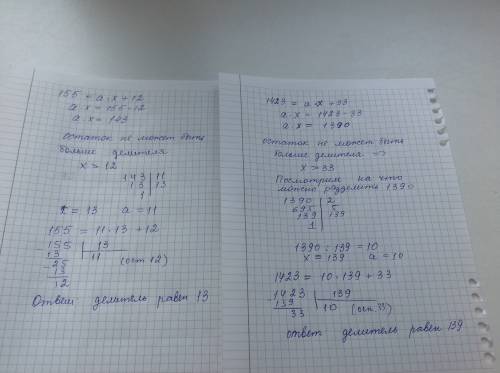 155 = a·x+12
a·x = 155-12
a·x = 143
остаток не может быть
больше делителя
x > 12
143 | 11
13 | 13
1 |
x = 13 a = 11
155 = 11·13 +12
155 | 13
13 | 11 (ост 12)
25
13
12
Ответ делитель равен 13
1423 = a·x +33
a·x = 1423-33
a·x = 1390
остаток не может быть
больше делителя =>
x > 33
Посмотрим на что
можно разделить 1390
1390 | 2
695 | 5
139 | 139
1 |
1390 : 139 = 10
x = 139 a = 10
1423 = 10·139 + 33
1423 | 139
139 | 10 (ост. 33)
33
ответ делитель равен 139